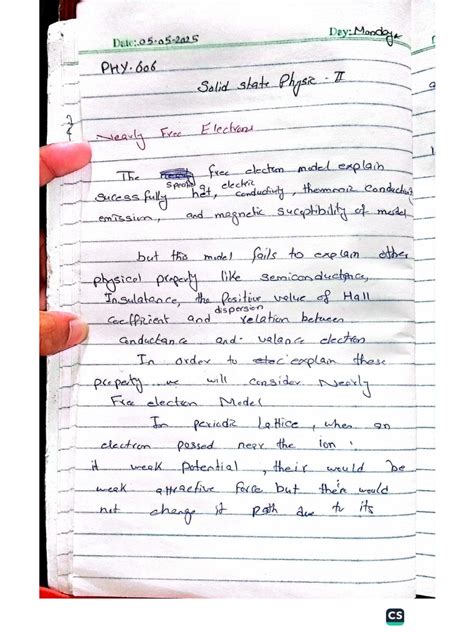 Date: 05-05-2025 Day: Monday
PHY-606
Solid state Physic - II
Nearly Free Electrons
The free electron model explain
sucessfully specific heat, electric conductivity, themonic conductivity
emission, and magnetic suceptibility of
but this model fails to explain other
physical property like semiconductance,
Insulatance, the Positive value of Hall
coefficient and dispersion relation between
conductance and valance electron
In order to explain these
property we will consider Nearly
Free electron Model
In periodic Lattice, when an
electron passed near the ion
it weak potential, their would be
weak attractive force but their would
not change it path due to its
CS